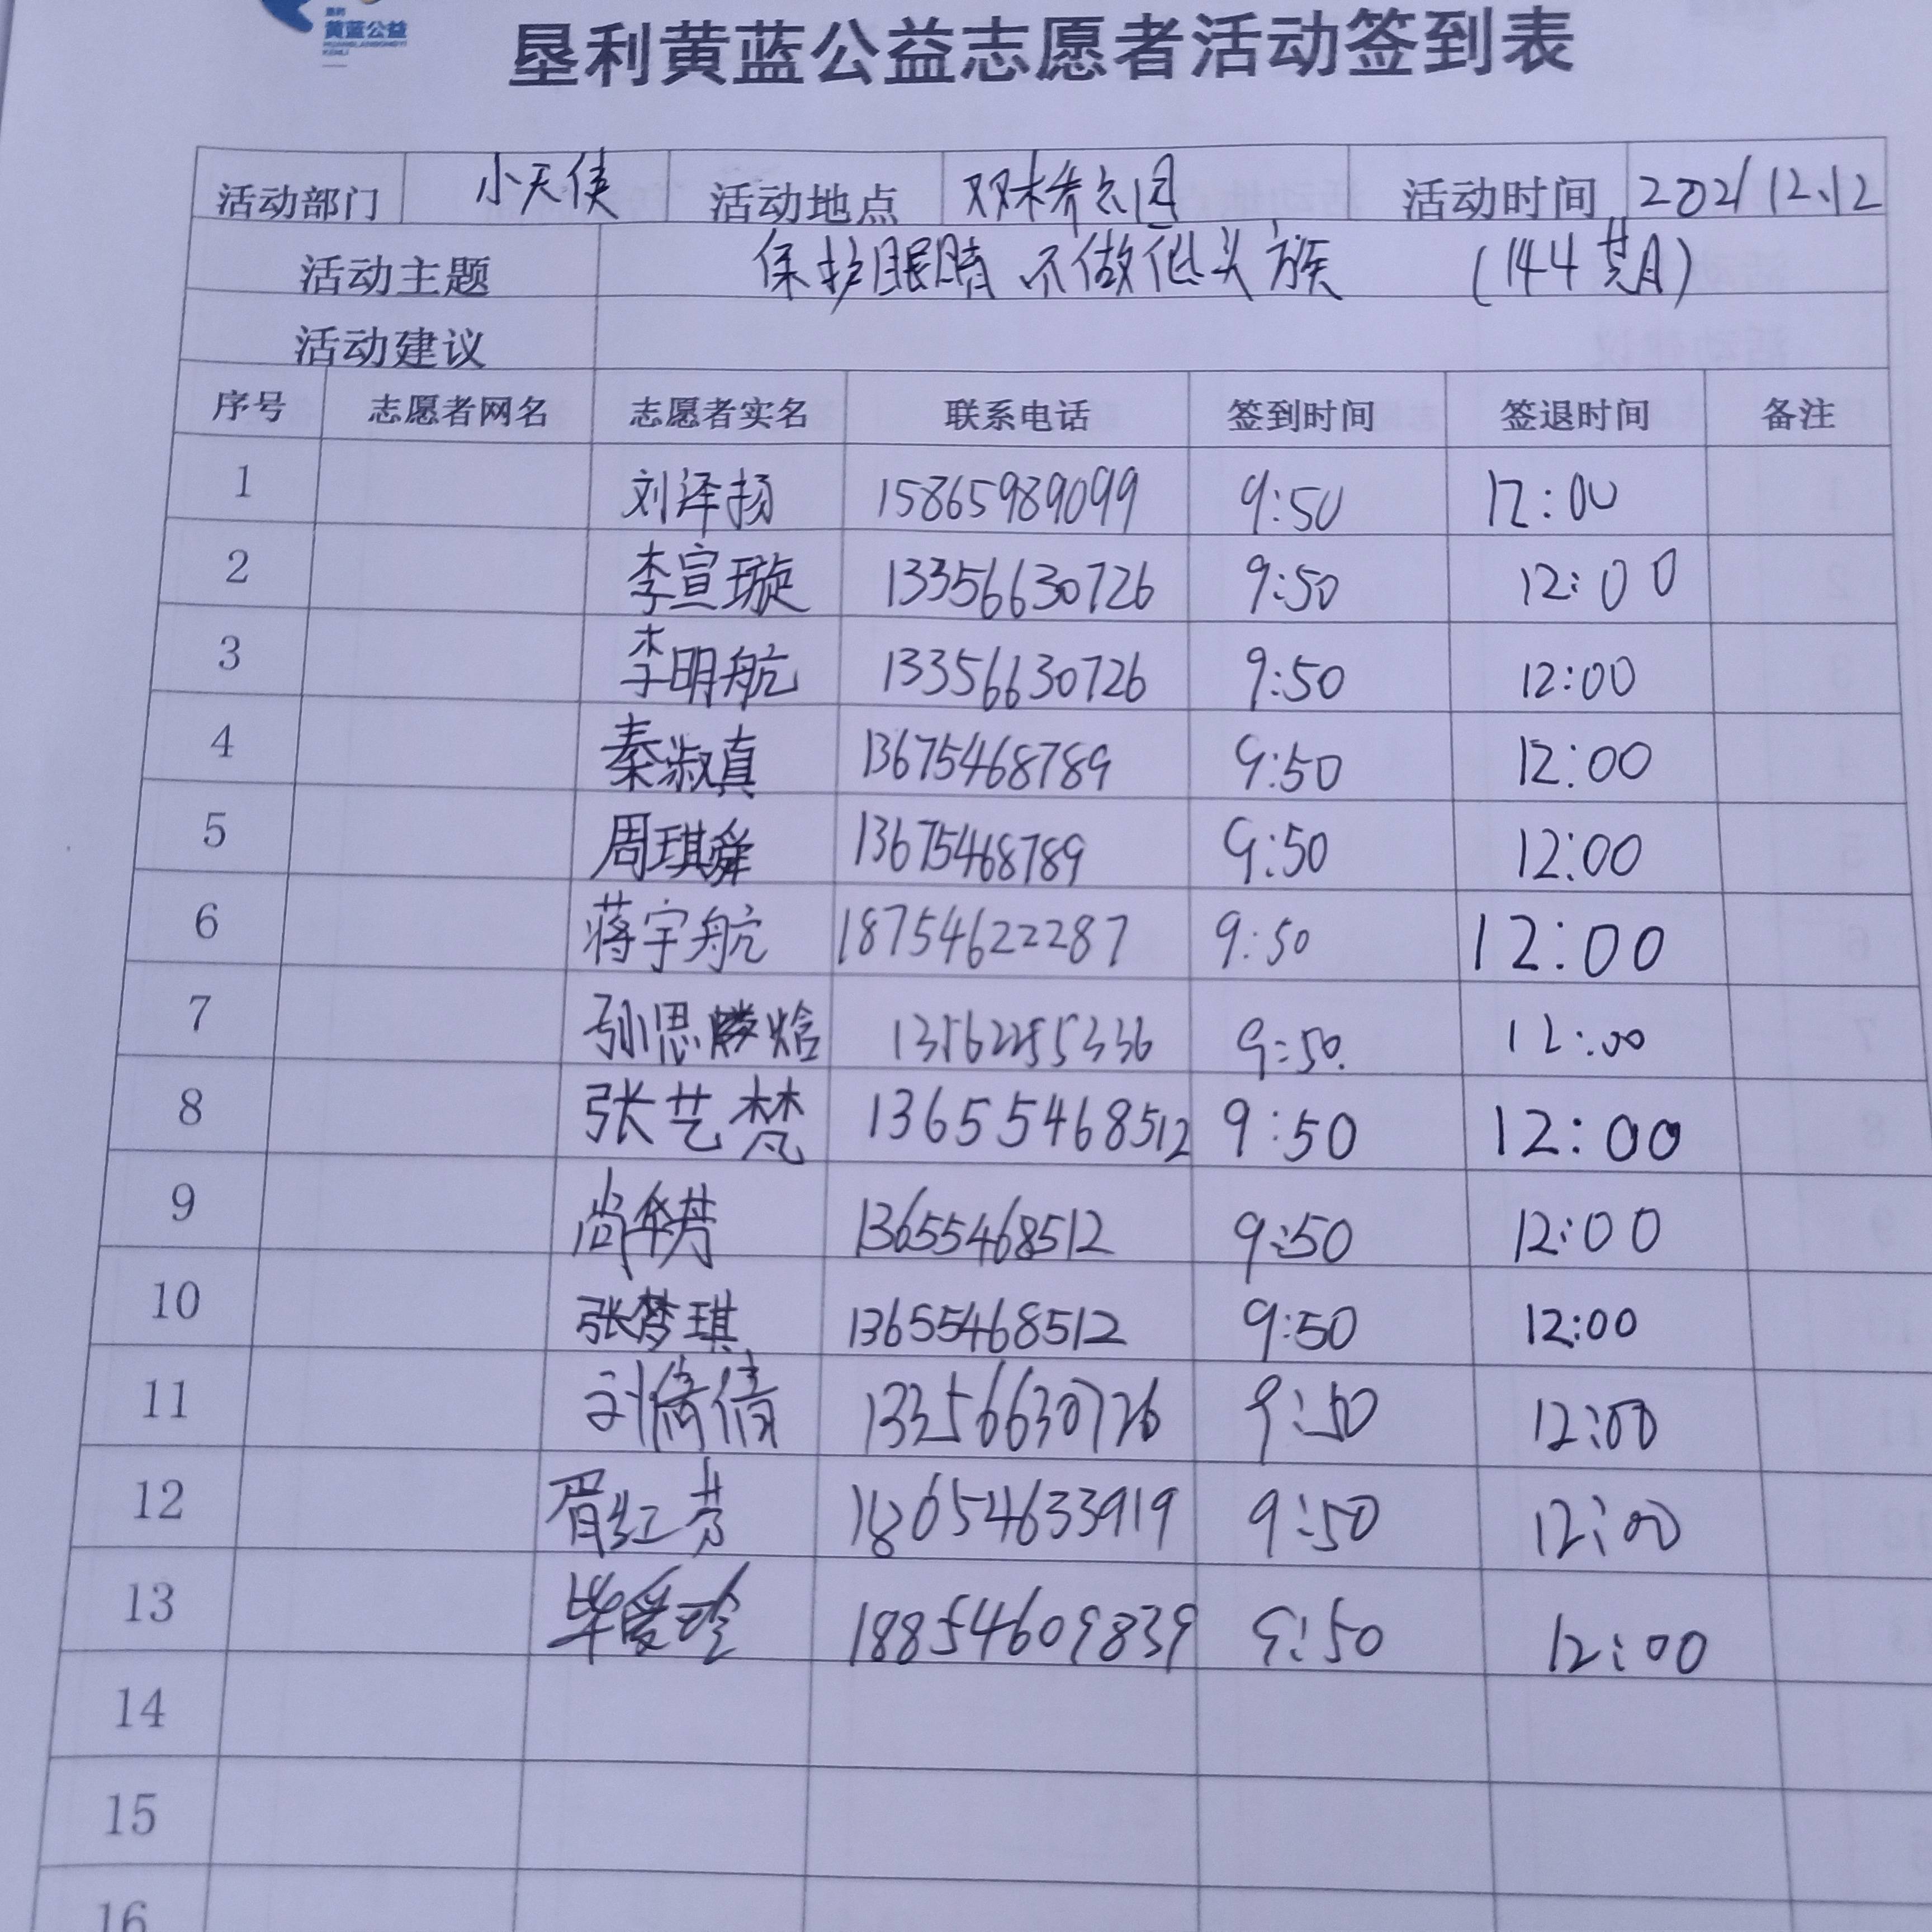 垦利
黄蓝公益
HUANGLANGONGYI
KENLI
垦利黄蓝公益志愿者活动签到表
活动部门 小天使 活动地点 双林寿公园 活动时间 2021 12.12
活动主题 保护眼睛 不做低头族 (144期)
活动建议
序号 志愿者网名 志愿者实名 联系电话 签到时间 签退时间 备注
1 刘泽扬 15865989099 9:50 12:00
2 李宣璇 13356630726 9:50 12:00
3 李明航 13356630726 9:50 12:00
4 秦淑真 13675468789 9:50 12:00
5 周琪舜 13675468789 9:50 12:00
6 蒋宇航 18754622287 9:50 12:00
7 孙思麟焓 9:50. 12:00
8 张艺梵 13655468512 9:50 12:00
9 尚华芳 13655468512 9:50 12:00
10 张梦琪 13655468512 9:50 12:00
11 刘倚倩 13356630726 9:50 12:00
12 胥红芳 18654633919 9:50 12:00
13 毕爱玲 18854609839 9:50 12:00
14
15
16